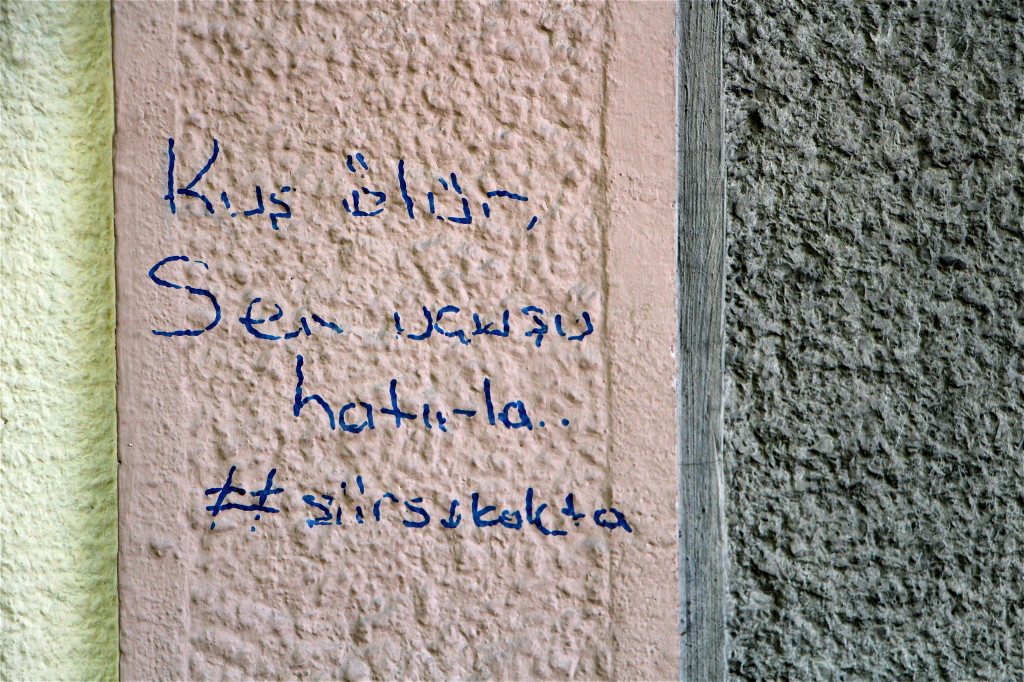 Kuş ölür,
Sen uçuşu
hatırla..
#şiirsokakta